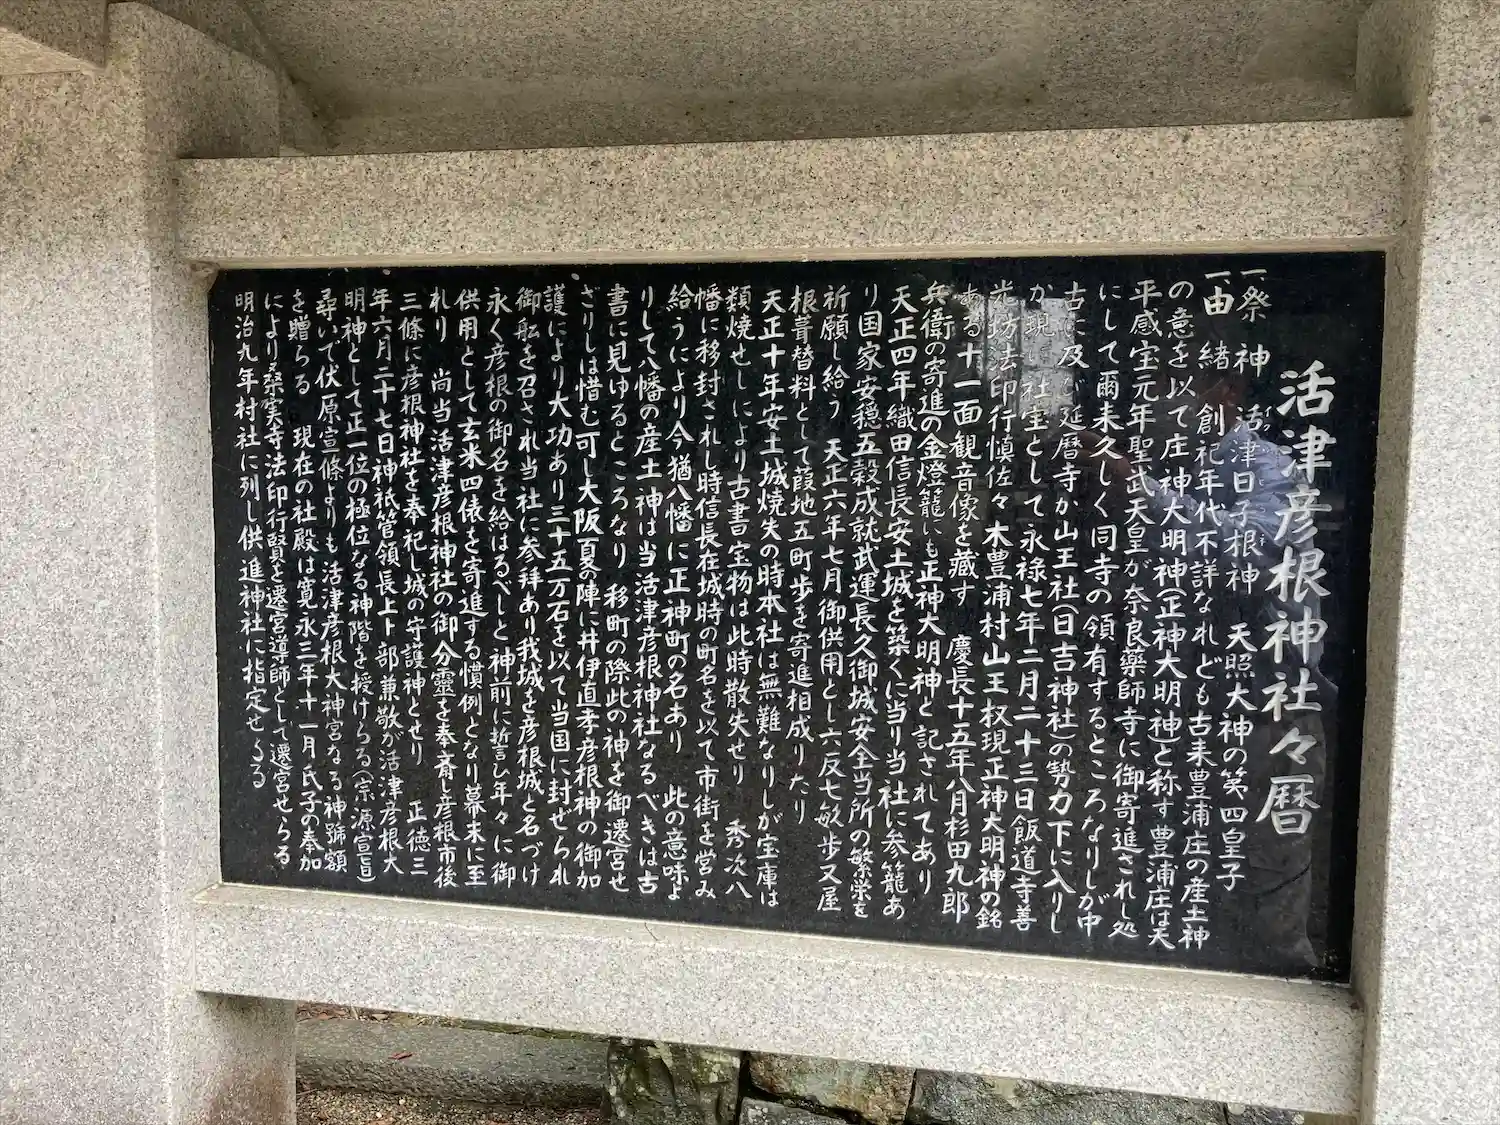 活津彦根神社々暦
一祭神 活津日子根神 天照大神の第四皇子
一由緒 創祀年代不詳なれども古来豊浦庄の産土神
の意を以て庄神大明神(正神大明神)と称す豊浦庄は天
平感宝元年聖武天皇が奈良薬師寺に御寄進されし処
にして爾来久しく同寺の領有するところなりしが中
古に及び延暦寺か山王社(日吉神社)の勢力下に入りし
か現しに社宝として永禄七年二月二十三日飯道寺善
光坊法印行慎佐々木豊浦村山王权現正神大明神の銘
ある十一面観音像を藏す 慶長十五年八月杉田九郎
兵衛の寄進の金燈籠にも正神大明神と記されてあり
天正四年織田信長安土城を築くに当り当社に参籠あ
り国家安穏五穀成就武運長久御城安全当所の繁栄を
祈願し給う 天正六年七月御供用とし六反七畝歩又屋
根葺替料として葭地五町歩を寄進相成りたり
天正十年安土城焼失の時本社は無難なりしが宝庫は
類焼せしにより古書宝物は此時散失せり 秀次八
幡に移封されし時信長在城時の町名を以て市街を営み
給うにより今猶八幡に正神町の名あり 此の意味よ
りして八幡の産土神は当活津彦根神社なるべきは古
書に見ゆるところなり 移町の際此の神を御遷宮せ
ざりしは惜む可し大阪夏の陣に井伊直孝彦根神の御加
護により大功あり三十五万石を以て当国に封ぜられ
御船を召され当社に参拜あり我城を彦根城と名づけ
永く彦根の御名を給はるべしと神前に誓ひ年々に御
供用として玄米四俵を寄進する慣例となり幕末に至
れり 尚当活津彦根神社の御分靈を奉斎し彦根市後
三條に彦根神社を奉祀し城の守護神とせり 正徳三
年六月二十七日神祇管領長上卜部兼敬が活津彦根大
明神として正一位の極位なる神階を授けらる(宗源宣旨)
尋いで伏原宣條よりも活津彦根大神宮なる神號額
を贈らる 現在の社殿は寛永三年十一月氏子の奉加
により桑実寺法印行賢を遷宮導師として遷宮せらる
明治九年村社に列し供進神社に指定せらる